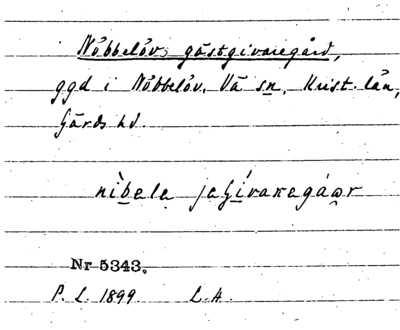 Nöbbelöv, gästgivaregård,
ggd i Nöbbelöv, Vä sn, Krist. län,
Gärds hd.
nìbela jaʃívaregáɷr
Nr 5343.
P. L. 1899. L. H.